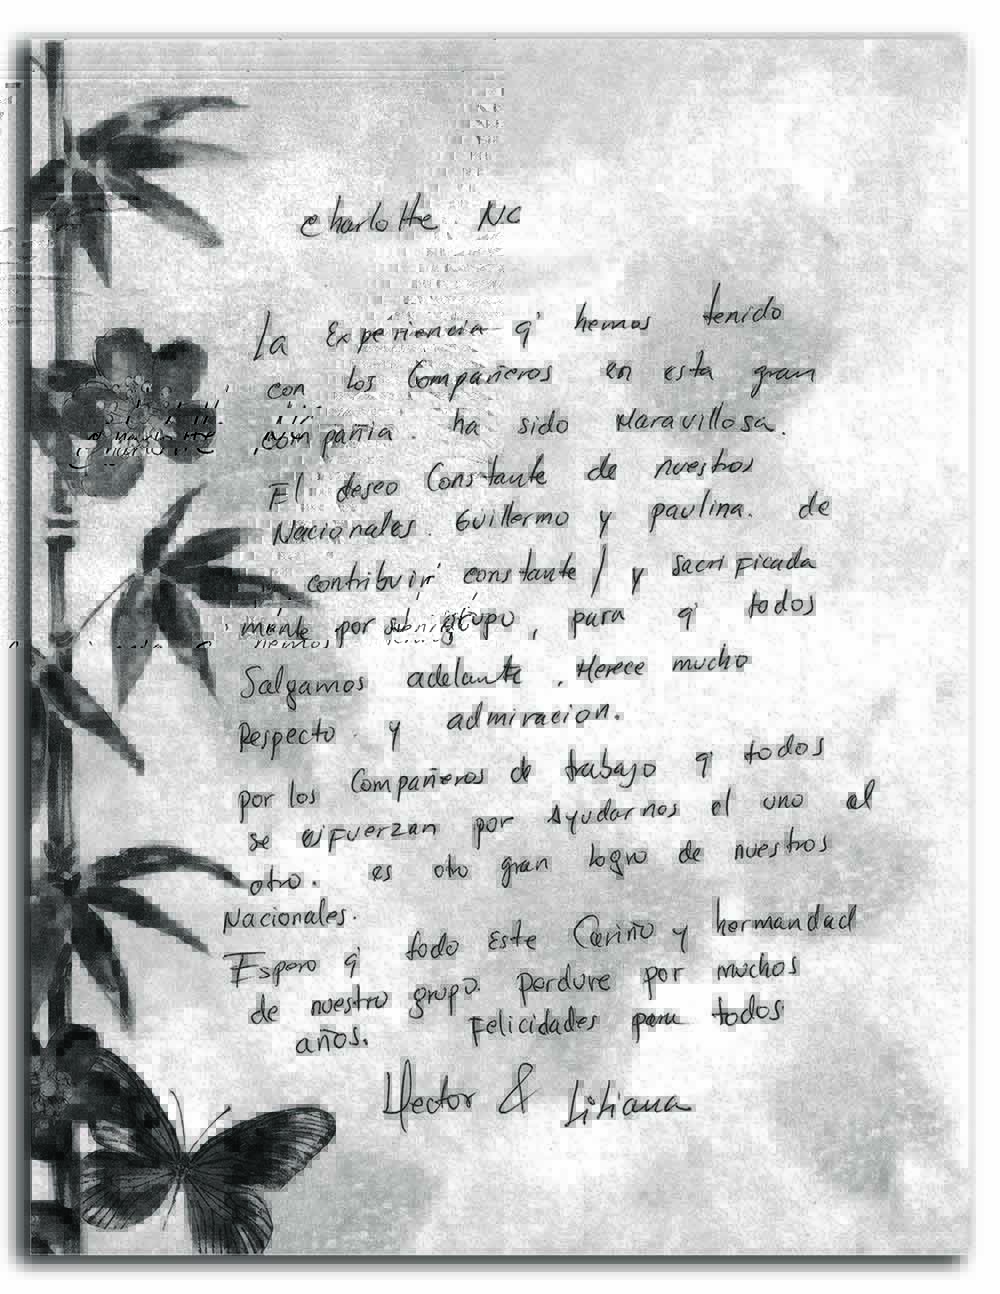 Charlotte NC
La Experiencia q' hemos tenido
con los Compañeros en esta gran
compañia. ha sido Maravillosa.
El deseo Constante de nuestros
Nacionales. Guillermo y paulina. de
contribuir constante/ y sacrificada
mente por su grupo, para q' todos
Salgamos adelante, Merece mucho
Respecto y admiracion.
por los Compañeros de trabajo q' todos
se esfuerzan por Ayudarnos el uno al
otro. es otro gran logro de nuestros
Nacionales.
Espero q' todo Este Cariño y hermandad
de nuestro grupo. Perdure por muchos
años. Felicidades para todos
Hector & Liliana